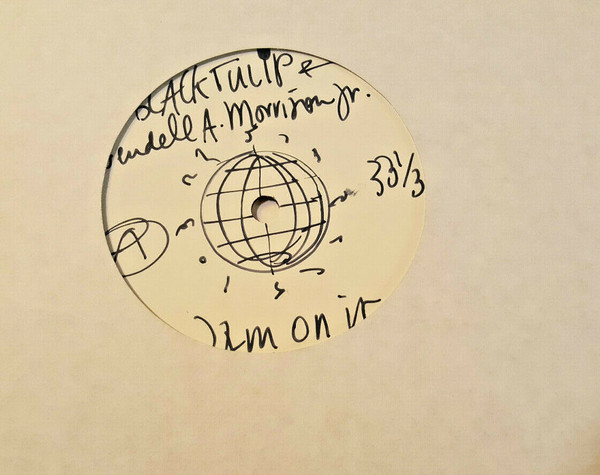 LACKTULIP &
endell A. Morrison Jr.
33 1/3
A
Jam on it